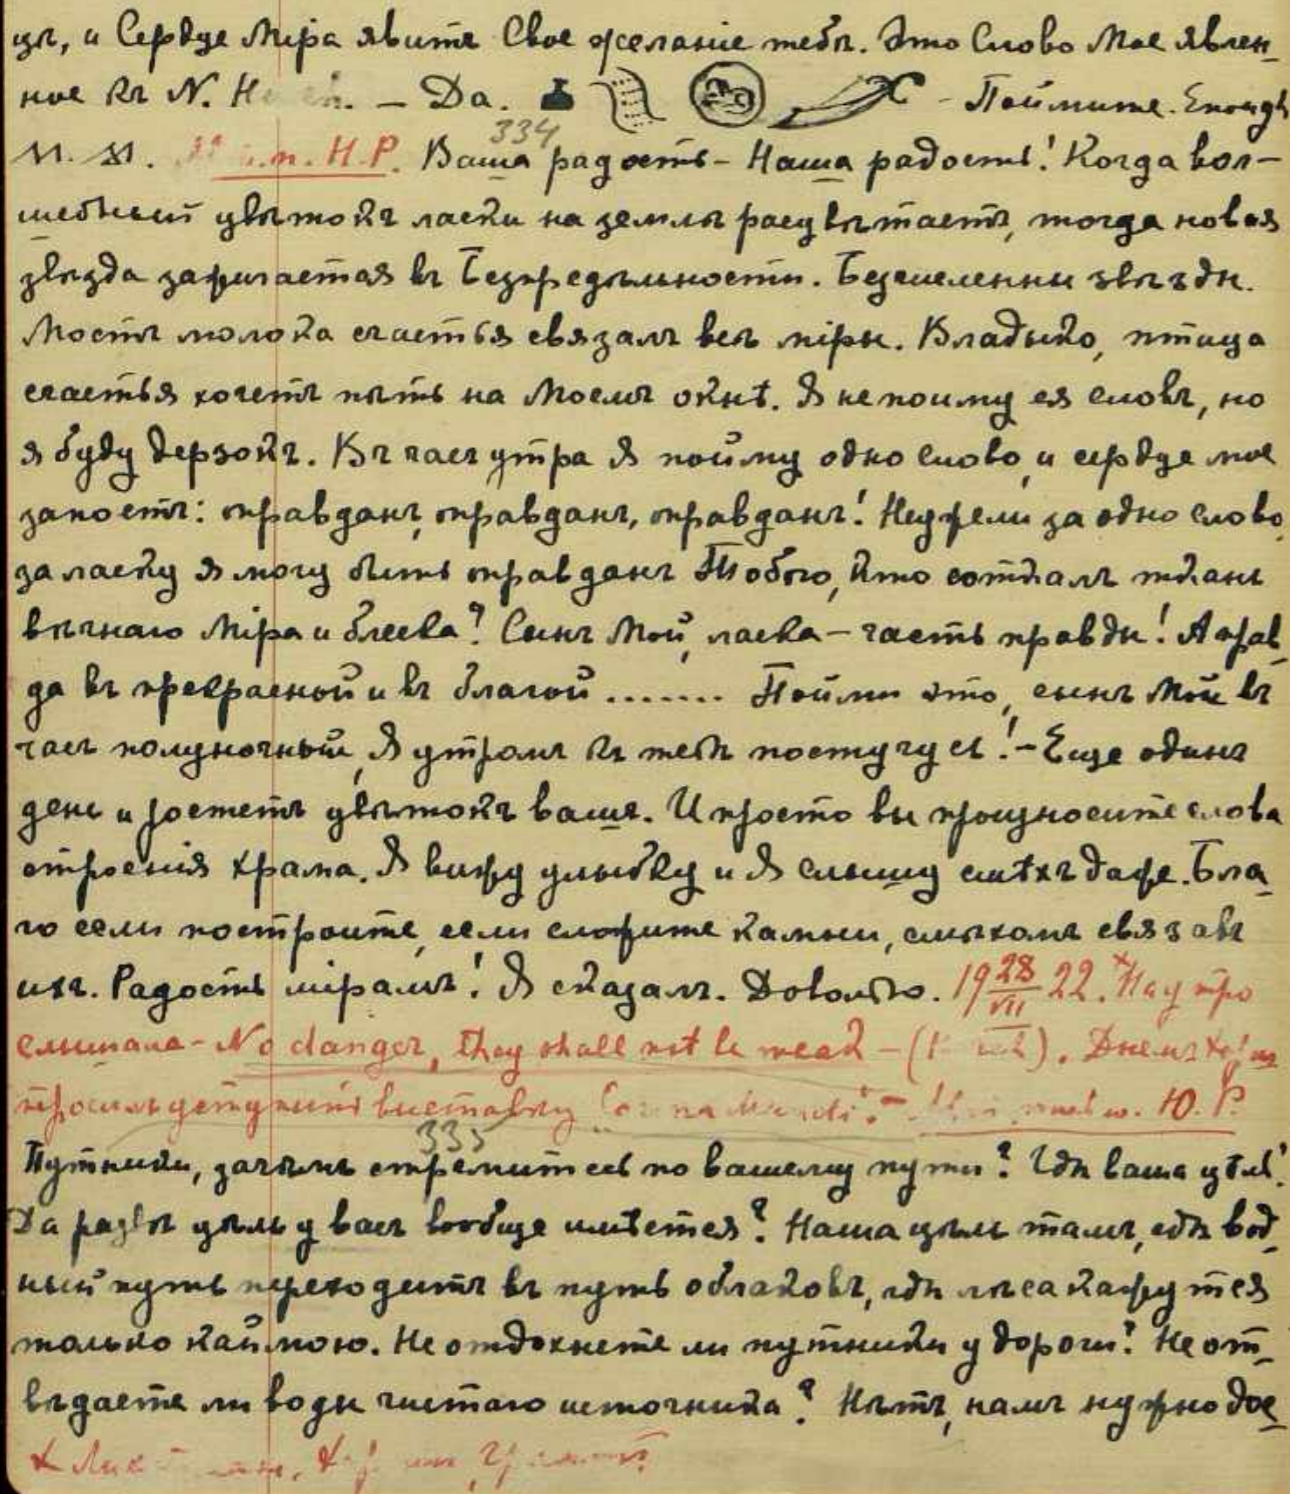 цѣ, и Сердце Міра явитъ Свое желаніе тебѣ. Это Слово Мое явлен-
ное къ N. – Да. – Поймите. Enough
M. M. Н.Р. 334 Ваша радость – Наша радость! Когда вол-
шебный цвѣтокъ ласки на землѣ расцвѣтаетъ, тогда новая
звѣзда зажигается въ Безпредѣльности. Безчисленны звѣзды.
Мостъ молока счастья связалъ всѣ міры. Владыко, птица
счастья хочетъ пѣть на Моемъ окнѣ. Я не пойму ея словъ, но
я буду дерзокъ. Въ часъ утра я пойму одно слово, и сердце мое
запоетъ: оправданъ, оправданъ, оправданъ! Неужели за одно слово,
за ласку я могу быть оправданъ Тобою, Кто соткалъ ткань
вѣчнаго Міра и блеска? Сынъ Мой, ласка – часть правды! А прав-
да въ прекрасной и въ благой ....... Пойми это, сынъ Мой въ
часъ полуночный, Я утромъ къ тебѣ постучусь! – Еще одинъ
день и ростетъ цвѣтокъ вашъ. И просто вы произносите слова
строенія храма. Я вижу улыбку и Я слышу смѣхъ даже. Бла-
го если построите, если сложите камни, смѣхомъ связавъ
ихъ. Радость мірамъ! Я сказалъ. Довольно. 19 28/VII 22. На утро
слышала – No danger, they shall not be weak – Днемъ
выставку Cor na Mundi Ю. Р.
335
Путники, зачѣмъ стремитесь по вашему пути? Гдѣ ваша цѣль?
Да развѣ цѣль у васъ вообще имѣется? Наша цѣль тамъ, гдѣ вод-
ный путь переходитъ въ путь облаковъ, гдѣ лѣса кажутся
только каймою. Не отдохнете ли путники у дороги? Не от-
вѣдаете ли воды чистаго источника? Нѣтъ, намъ нужно дос-